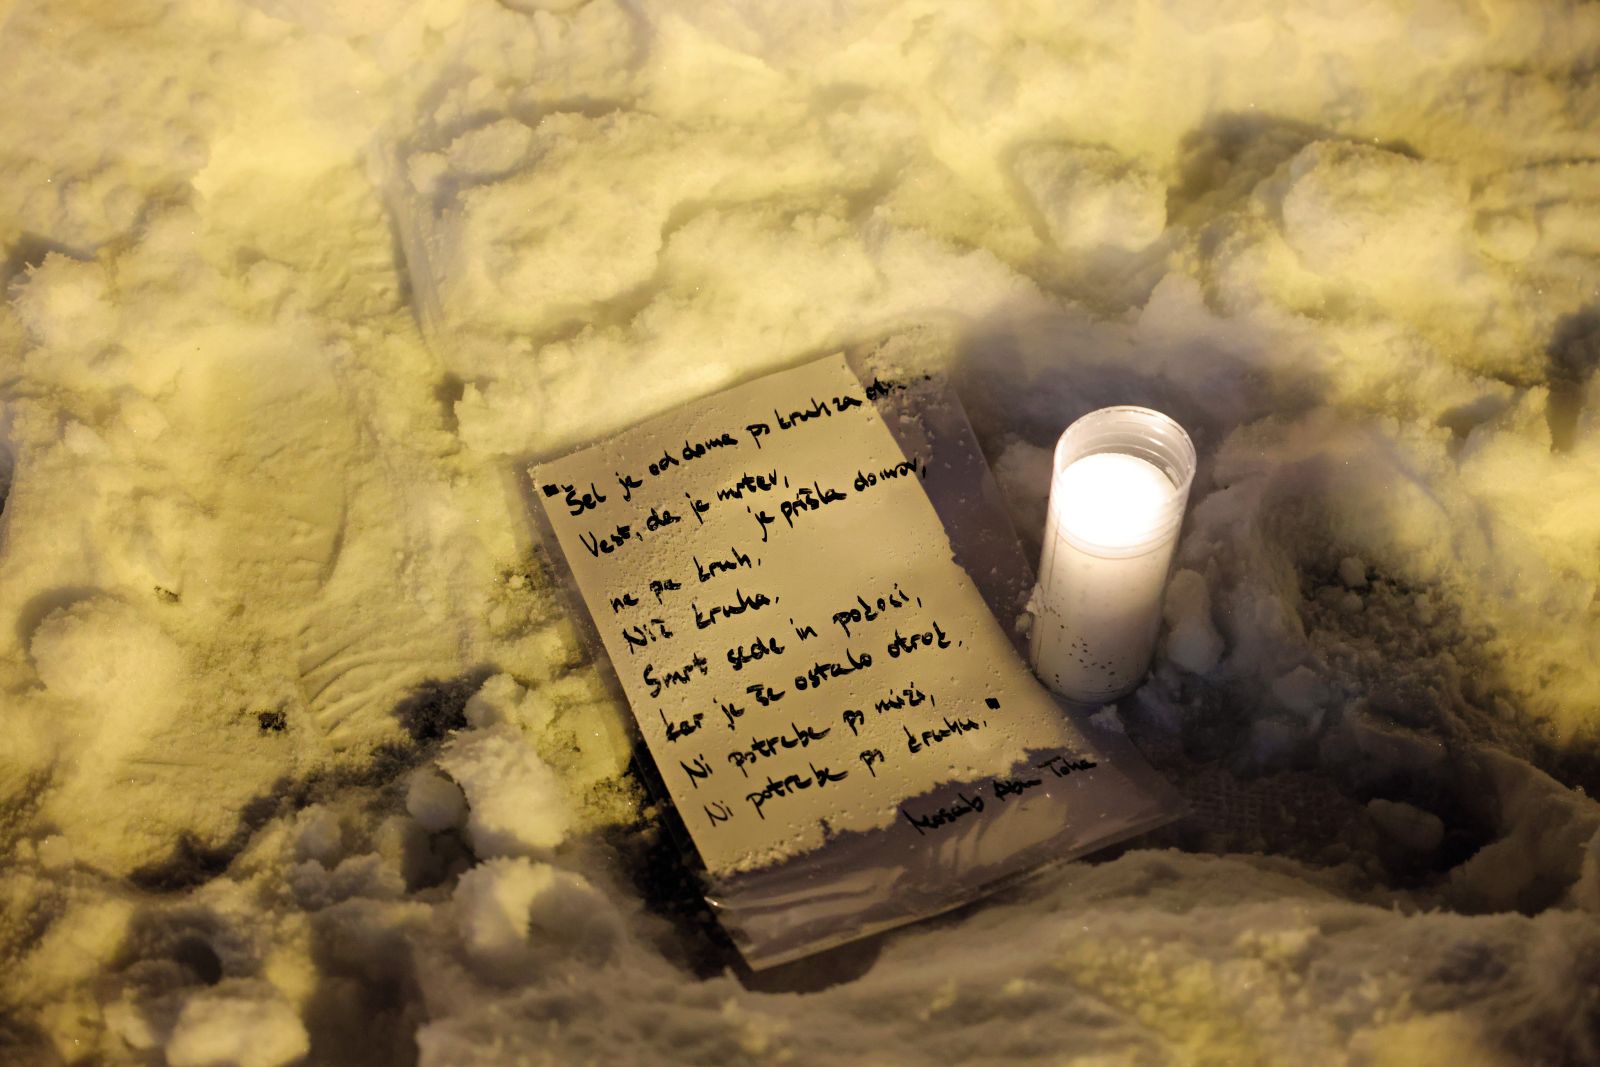 "Šel je od doma po kruh za ot
Vest, da je mrtev,
je prišla domov,
ne pa kruh.
Nič kruha.
Smrt sede in požoči,
kar je še ostalo otrok.
Ni potrebe po mizi,
Ni potrebe po kruhu."
Mosab Abu Toha